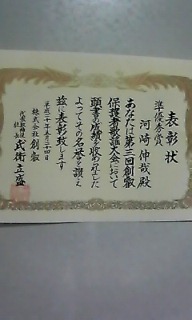 表彰状
準優秀賞
河崎伸哉殿
あなたは第三回創叡
保護者歌謡大会において
頭書の成績を収められました
よってその名誉を讃え
茲に表彰致します
平成二十年五月二十四日
株式会社創叡
代表取締役
社長